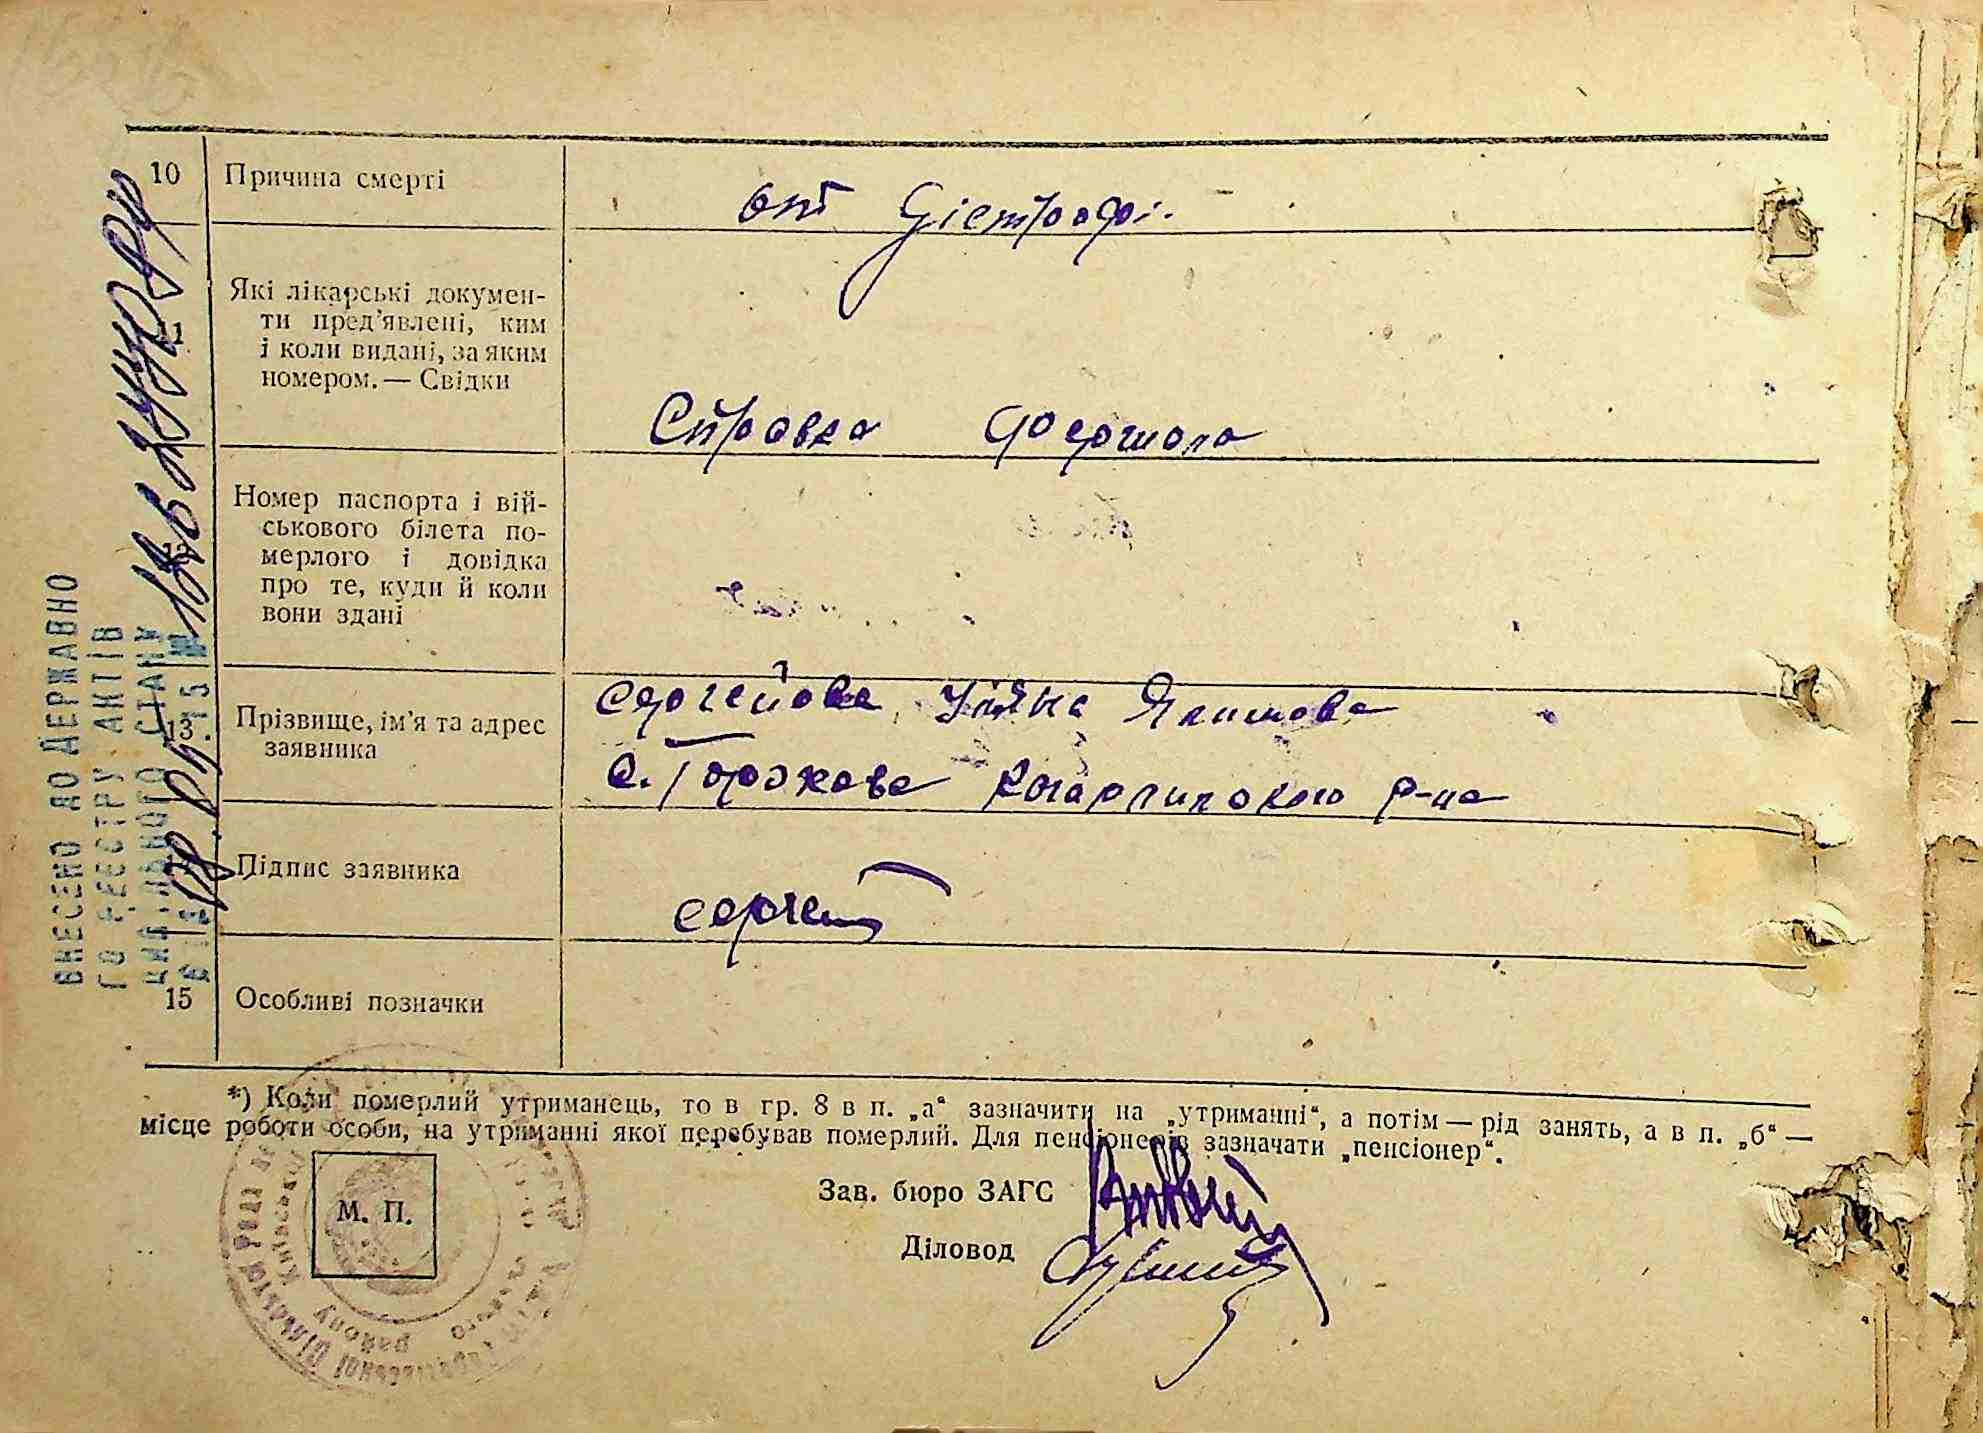 10 Причина смерті
от Дістрофі.
11 Які лікарські докумен-
ти пред'явлені, ким
і коли видані, за яким
номером. — Свідки
Справка фершала
Номер паспорта і вій-
ськового білета по-
мерлого і довідка
про те, куди й коли
вони здані
13 Прізвище, ім'я та адрес
заявника
Сергейова Уляна Якимова
с. Горохова Кагарлицкого р-на
Підпис заявника
Сергей
15 Особливі позначки
*) Коли померлий утриманець, то в гр. 8 в п. „а“ зазначити на „утриманні“, а потім — рід занять, а в п. „б“ —
місце роботи особи, на утриманні якої перебував померлий. Для пенсіонерів зазначати „пенсіонер“.
Зав. бюро ЗАГС
М. П.
Діловод
ВНЕСЕНО ДО ДЕРЖАВНО
ГО РЕЄСТРУ АКТІВ
ЦИВІЛЬНОГО СТАНУ
району